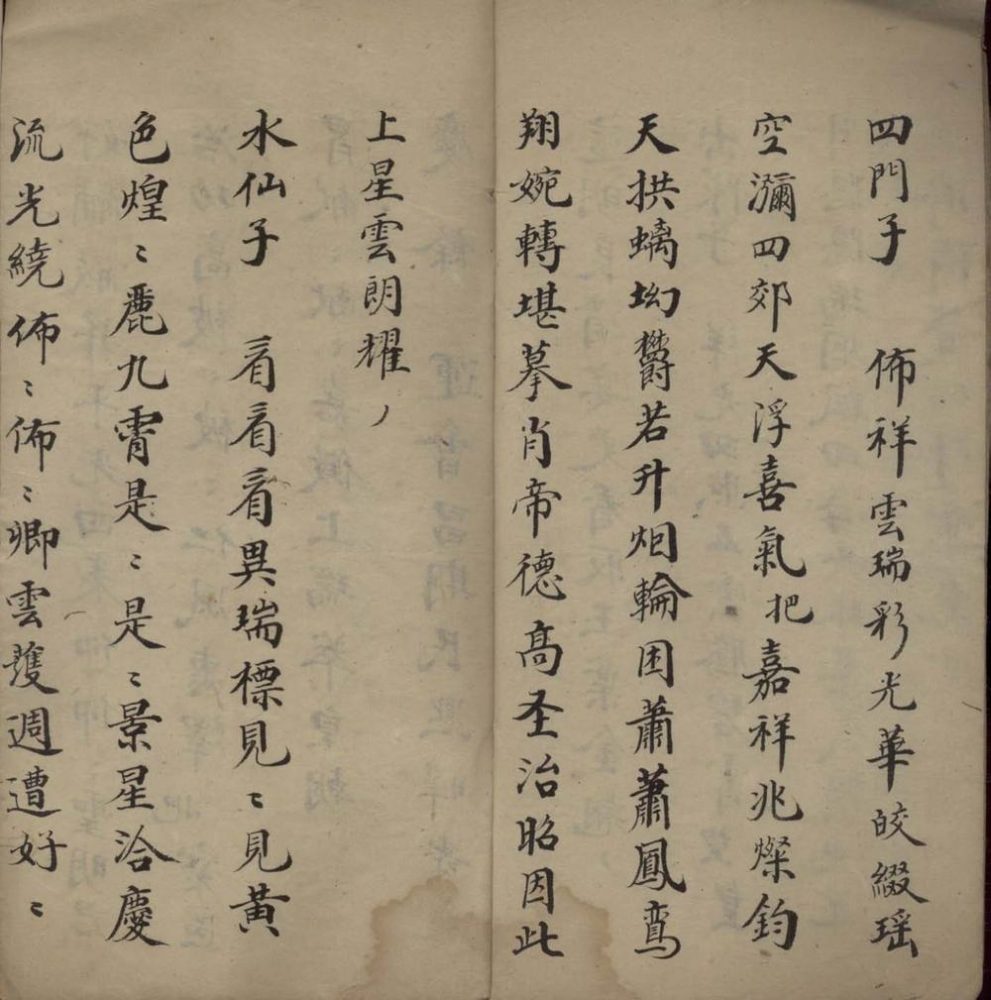 四門子　佈祥雲瑞彩光華皎綴瑶
空瀰四郊天浮喜氣把嘉祥兆燦鈞
天拱螭坳欝若升烟輪囷蕭蕭鳳鸾
翔婉轉堪摹肖帝德高圣治昭因此
上星雲朗耀，
水仙子　看看看異瑞標見〻見黃
色煌〻麗九霄是〻是〻景星洽慶
流光繞佈〻佈〻卿雲護週遭好〻